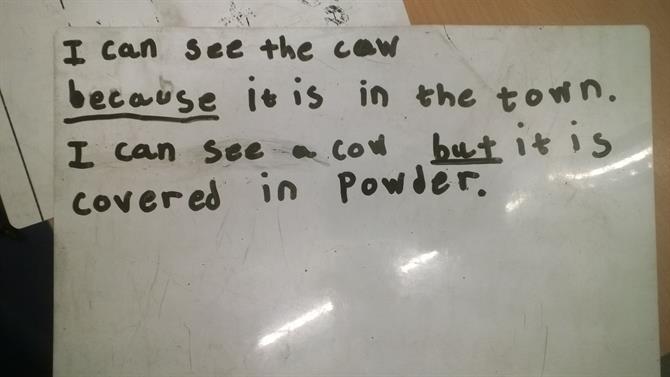 I can see the cow
because it is in the town.
I can see a cow but it is
covered in powder.